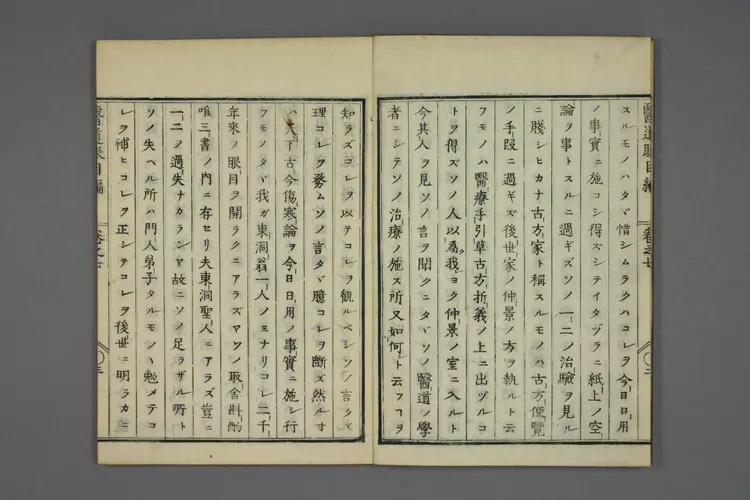 醫道眼目編 卷之七 〇三
スルモノハタヾ惜シムラクハコレヲ今日日用
ノ事實ニ施コシ得ズシテイタヅラニ紙上ノ空
論ヲ事トスルニ過ギズソノ一二ノ治驗ヲ見ル
ニ賤シヒカナ古方家ト稱スルモノハ古方便覽
ノ手段ニ過ギズ後世家ノ仲景ノ方ヲ執ルト云
フモノハ醫療手引草古方折義ノ上ニ出ヅルコ
トヲ得ズソノ人以爲我ヨク仲景ノ室ニ入ルト
今其人ヲ見ソノ言ヲ聞クニタヾソノ醫道ノ學
者ニシテソノ治療ノ施ス所又如何ト云フヿヲ
知ラズコレヲ以テコレヲ觀ルベシソノ言タヾ
理コレヲ務ムソノ言タヾ臆コレヲ斷ズ然ルオ
ハ天下古今傷寒論ヲ今日日用ノ事實ニ施シ行
フモノタヾ我ガ東洞翁一人ノミナリコレ二千
年來ノ眼目ヲ開ラクニアラズマソノ取舍斟酌
唯三書ノ內ニ存セリ夫東洞聖人ニアラズ豈ニ
一二ノ過失ナカランヤ故ニソノ足ラザル所ト
ソノ失ヘル所ハ門人弟子タルモノヽ勉メテコ
レヲ補ヒコレヲ正シテコレヲ後世ニ明ラカニ
醫道眼目編 卷之七 〇三